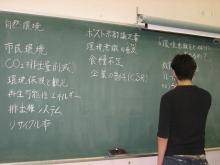 自然環境
市民環境
CO2排出量削減
環境保護と観光
再生可能性エネルギー
排出権システム
リサイクル率
ポスト京都議定書
環境意識の普及
食糧不足
企業の努力(CSR)